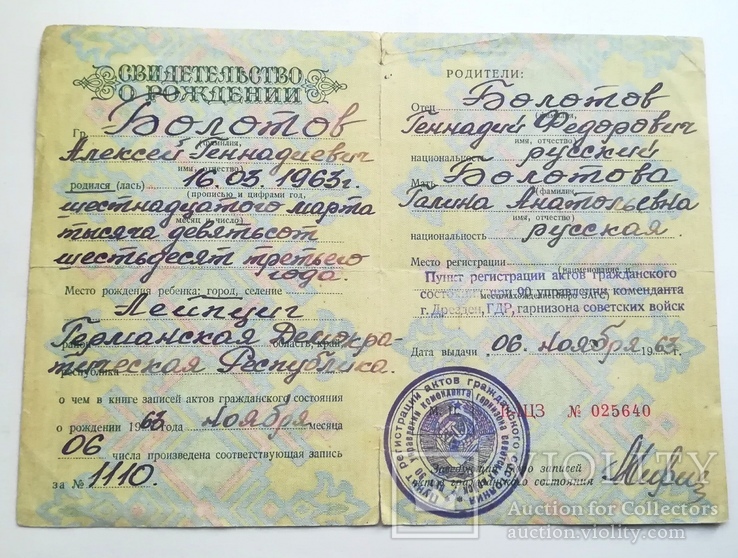 СВИДЕТЕЛЬСТВО
О РОЖДЕНИИ
Гр. Болотов
(фамилия,
Алексей Геннадиевич
имя, отчество)
родился (лась) 16.03.1963г.
(прописью и цифрами год,
шестнадцатого марта
месяц и число)
тысяча девятьсот
шестьдесят третьего
года.
Место рождения ребенка: город, селение
Лейпциг
Германская Демокра-
область, край
тическая Республика.
республика
о чем в книге записей актов гражданского состояния
о рождении 1963 года ноября месяца
06 числа произведена соответствующая запись
за № 1110.
РОДИТЕЛИ:
Отец Болотов
(фамилия,
Геннадий Федорович
имя, отчество)
национальность русский
Мать Болотова
(фамилия,
Галина Анатольевна
имя, отчество)
национальность русская
Место регистрации
(наименование и
Пункт регистрации актов гражданского
состояния при 90 управлении коменданта
местонахождение бюро ЗАГС)
г. Дрезден, ГДР, гарнизона советских войск
Дата выдачи 06 ноября 1963 г.
ЩЗ № 025640
записей
актов гражданского состояния
VIOLITY
Auction for Collectors
auction.violity.com